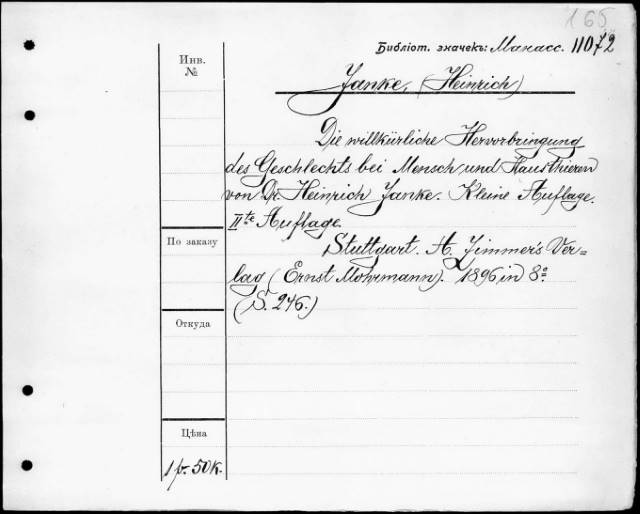 165
Библіот. значекъ: Манасс. 11072
Инв.
№
Janke, (Heinrich)
Die willkürliche Hervorbringung
des Geschlechts bei Mensch und Hausthieren
von Dr. Heinrich Janke. Kleine Auflage.
IIte Auflage.
По заказу
Stuttgart. A. Zimmer's Ver=
lag (Ernst Mohrmann). 1896 in 8º
(S. 246.)
Откуда
Цѣна
1 р. 50 к.